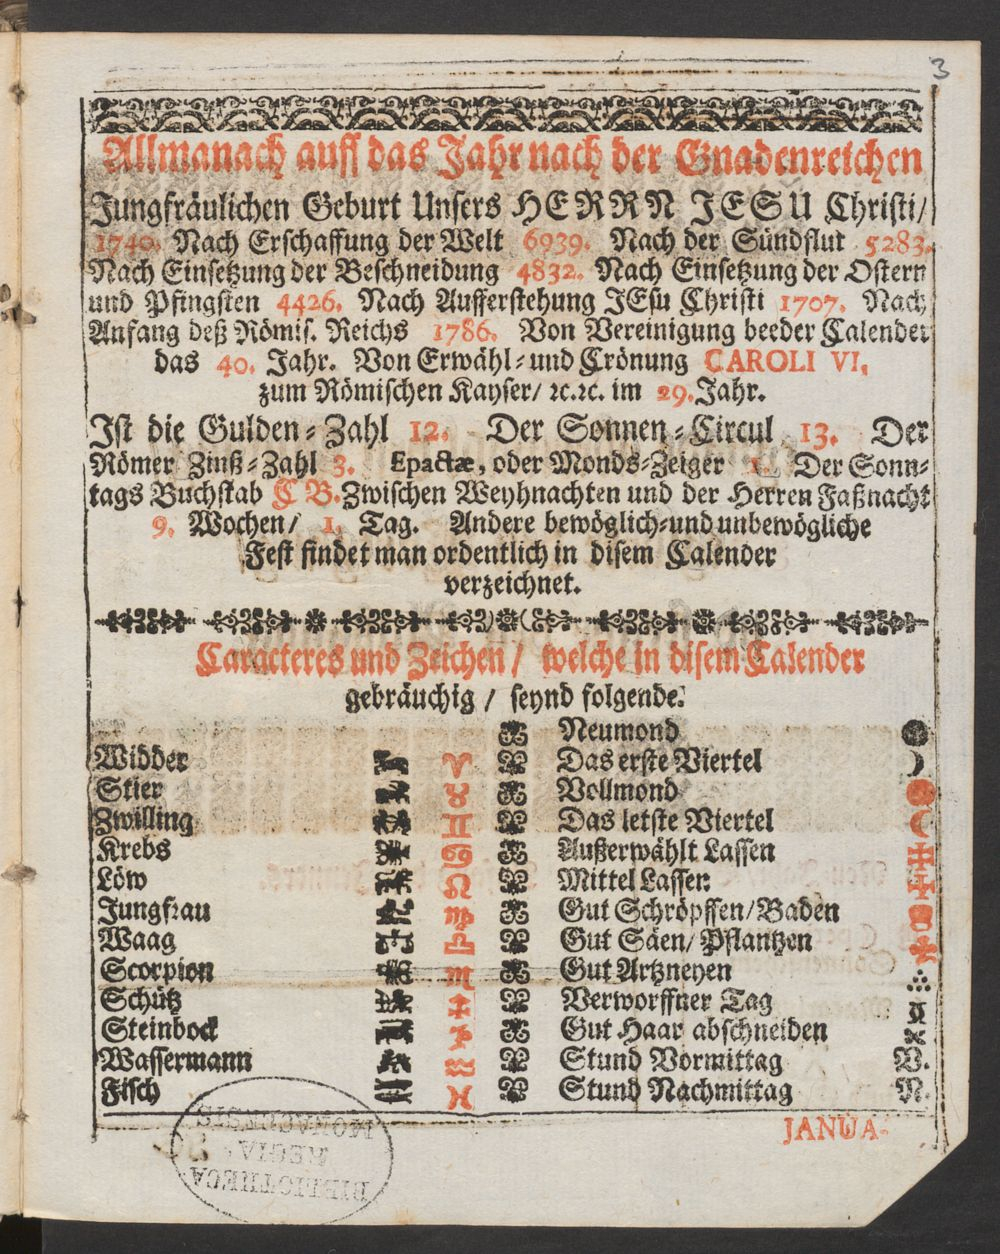 3
Allmanach auff das Jahr nach der Gnadenreichen
Jungfräulichen Geburt Unsers HERRN JESU Christi/
1740. Nach Erschaffung der Welt 6939. Nach der Sündflut 5283.
Nach Einsetzung der Beschneidung 4832. Nach Einsetzung der Ostern
und Pfingsten 4426. Nach Aufferstehung JEsu Christi 1707. Nach
Anfang deß Römis. Reichs 1786. Von Vereinigung beeder Calender
das 40. Jahr. Von Erwähl- und Crönung CAROLI VI.
zum Römischen Kayser/ ꝛc.ꝛc. im 29. Jahr.
Ist die Gulden-Zahl 12. Der Sonnen-Circul 13. Der
Römer Zinß-Zahl 3. Epactæ, oder Monds-Zeiger 1. Der Sonn-
tags Buchstab C B. Zwischen Weyhnachten und der Herren Faßnacht
9. Wochen/ 1. Tag. Andere bewöglich- und unbewögliche
Fest findet man ordentlich in disem Calender
verzeichnet.
Caracteres und Zeichen / welche in disem Calender
gebräuchig / seynd folgende:
Neumond
Widder ♈ Das erste Viertel
Stier ♉ Vollmond
Zwilling ♊ Das letste Viertel
Krebs ♋ Außerwählt Lassen
Löw ♌ Mittel Lassen
Jungfrau ♍ Gut Schröpffen/Baden
Waag ♎ Gut Säen/ Pflantzen
Scorpion ♏ Gut Artzneyen
Schütz ♐ Verworffner Tag
Steinbock ♑ Gut Haar abschneiden
Wassermann ♒ Stund Vormittag V.
Fisch ♓ Stund Nachmittag N.
JANUA-
BIBLIOTHECA
REGIA
MONACENSIS